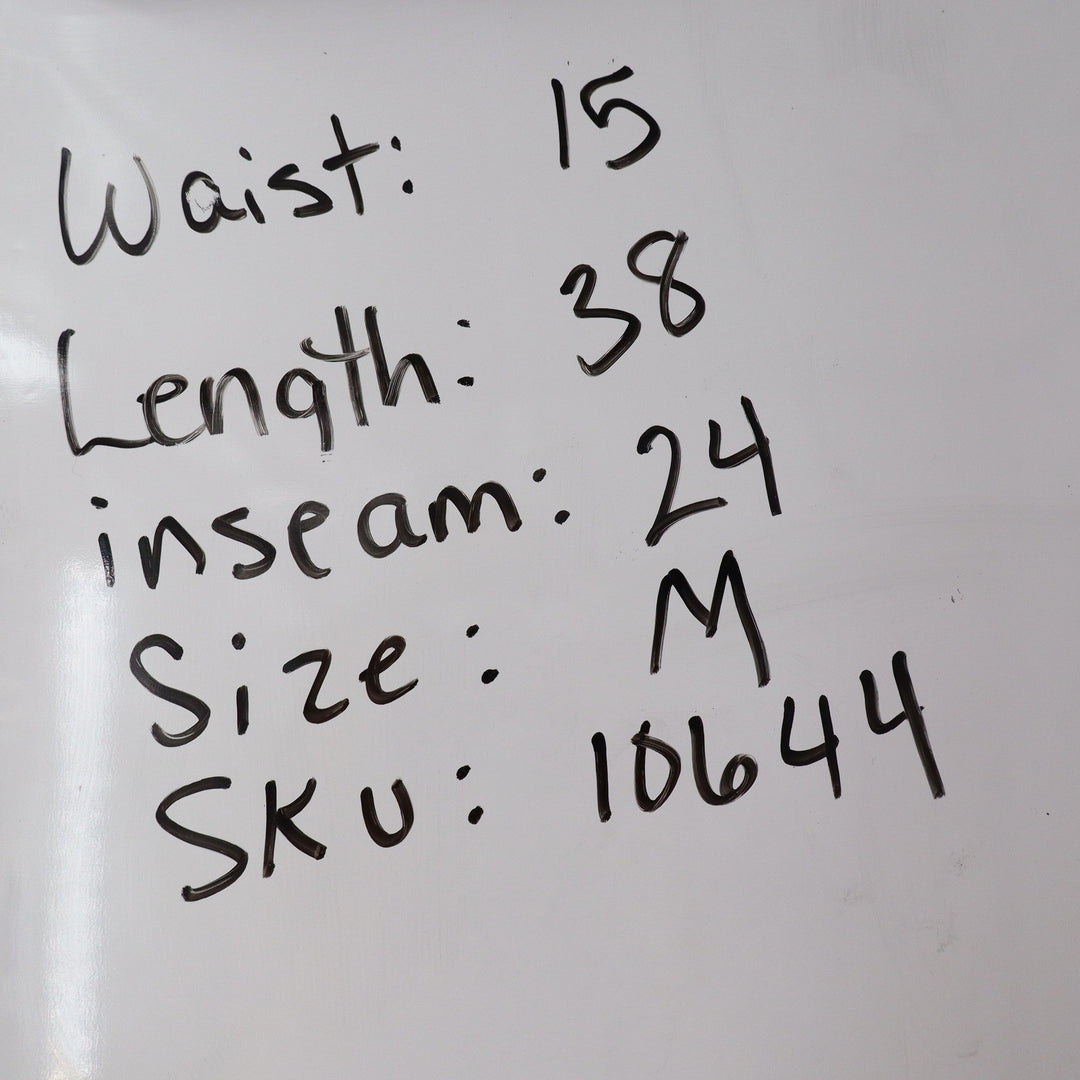 Waist: 15
Length: 38
inseam: 24
Size: M
SKU: 10644